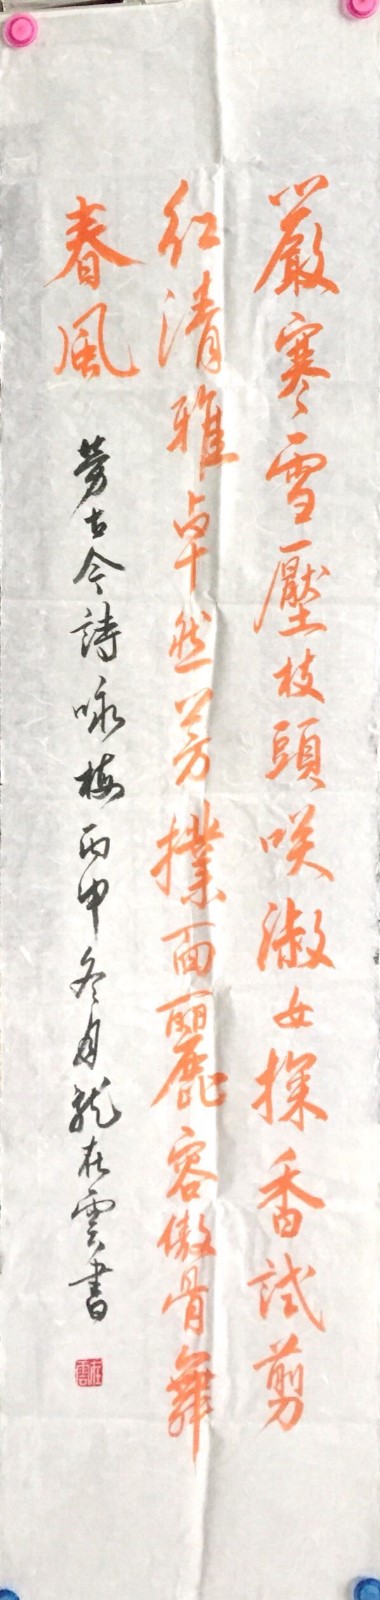 嚴寒雪壓枝頭咲淑女探香試剪
紅清雅卓然芳撲面麗容傲骨舞
春風
勞古今詩咏梅丙申冬月龍在雲書
在雲